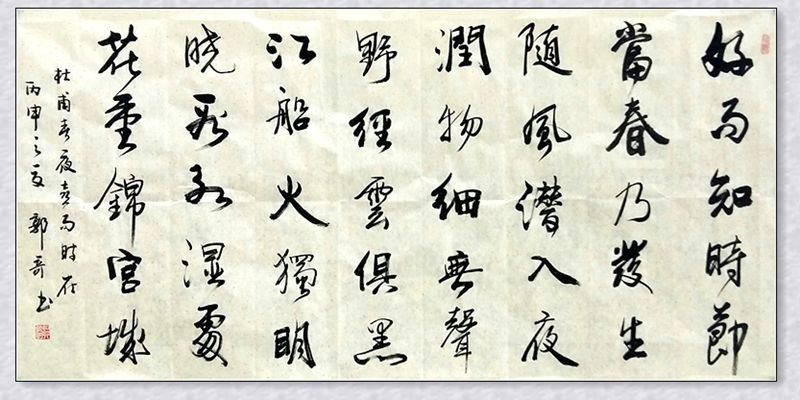 好雨知時節
當春乃發生
随風潛入夜
潤物細無聲
野經雲俱黑
江船火獨明
曉看紅湿處
花重錦官城
杜甫春夜喜雨時在
丙申之夏 郭 书